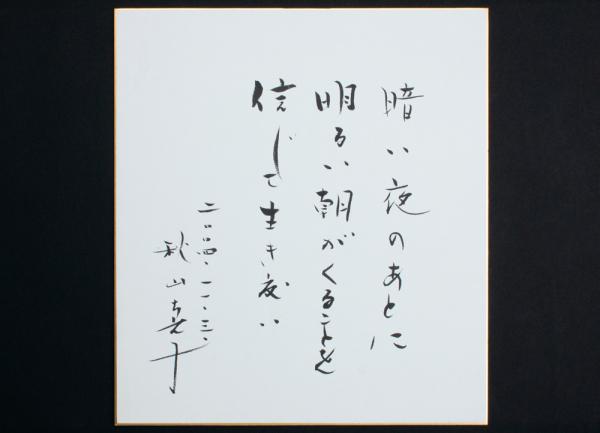 暗い夜のあとに
明るい朝がくることを
信じて生き度い
二〇〇四・一一・三、
秋山喜子